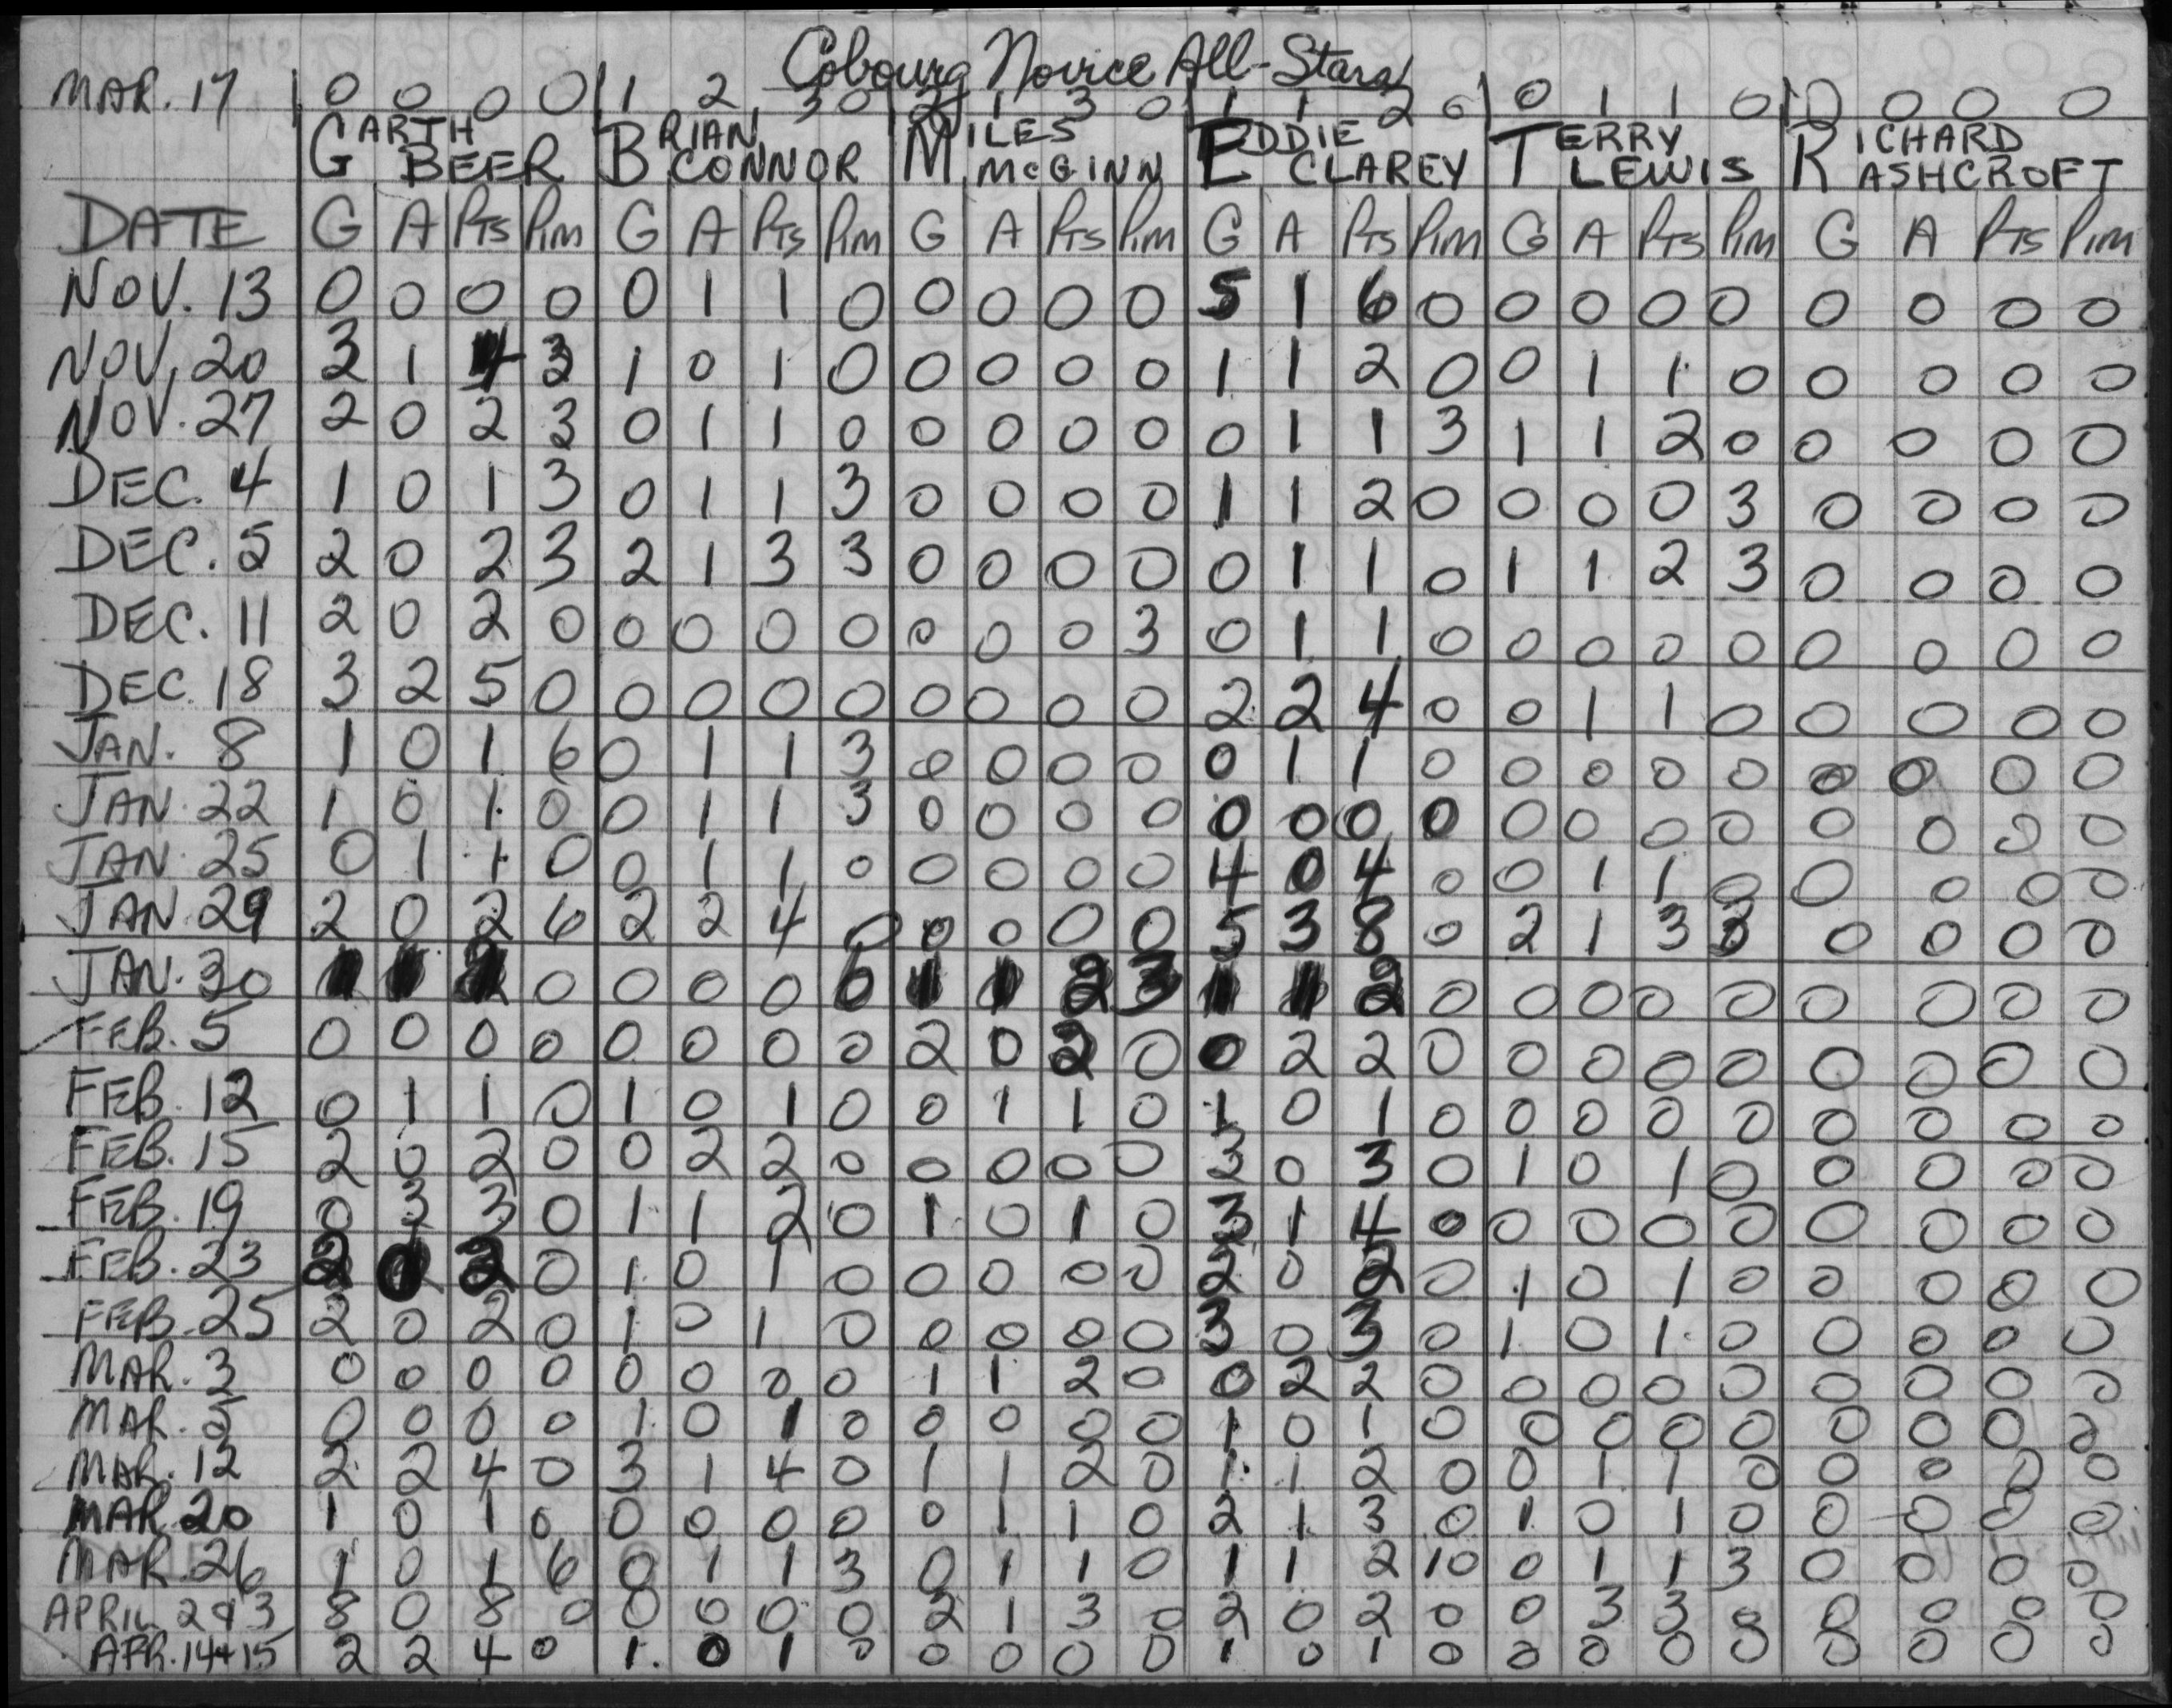 Cobourg Novice All-Stars
MAR. 17 0 0 0 0 1 2 3 0 2 1 3 0 1 1 2 0 0 1 1 0 0 0 0 0
GARTH BRIAN MILES EDDIE TERRY RICHARD
BEER CONNOR McGINN CLAREY LEWIS ASHCROFT
DATE G A Pts Pim G A Pts Pim G A Pts Pim G A Pts Pim G A Pts Pim G A Pts Pim
NOV. 13 0 0 0 0 0 1 1 0 0 0 0 0 5 1 6 0 0 0 0 0 0 0 0 0
NOV. 20 3 1 4 3 1 0 1 0 0 0 0 0 1 1 2 0 0 1 1 0 0 0 0 0
NOV. 27 2 0 2 3 0 1 1 0 0 0 0 0 0 1 1 3 1 1 2 0 0 0 0 0
DEC. 4 1 0 1 3 0 1 1 3 0 0 0 0 1 1 2 0 0 0 0 3 0 0 0 0
DEC. 5 2 0 2 3 2 1 3 3 0 0 0 0 0 1 1 0 1 1 2 3 0 0 0 0
DEC. 11 2 0 2 0 0 0 0 0 0 0 0 3 0 1 1 0 0 0 0 0 0 0 0 0
DEC. 18 3 2 5 0 0 0 0 0 0 0 0 0 2 2 4 0 0 1 1 0 0 0 0 0
JAN. 8 1 0 1 6 0 1 1 3 0 0 0 0 0 1 1 0 0 0 0 0 0 0 0 0
JAN. 22 1 0 1 0 0 1 1 3 0 0 0 0 0 0 0 0 0 0 0 0 0 0 0 0
JAN. 25 0 1 1 0 0 1 1 0 0 0 0 0 4 0 4 0 0 1 1 0 0 0 0 0
JAN. 29 2 0 2 6 2 2 4 0 0 0 0 0 5 3 8 0 2 1 3 3 0 0 0 0
JAN. 30 1 1 2 0 0 0 0 6 1 1 2 3 1 1 2 0 0 0 0 0 0 0 0 0
FEB. 5 0 0 0 0 0 0 0 0 2 0 2 0 0 2 2 0 0 0 0 0 0 0 0 0
FEB. 12 0 1 1 0 1 0 1 0 0 1 1 0 1 0 1 0 0 0 0 0 0 0 0 0
FEB. 15 2 0 2 0 0 2 2 0 0 0 0 0 3 0 3 0 1 0 1 0 0 0 0 0
FEB. 19 0 3 3 0 1 1 2 0 1 0 1 0 3 1 4 0 0 0 0 0 0 0 0 0
FEB. 23 2 1 3 0 1 0 1 0 0 0 0 0 2 0 2 0 1 0 1 0 0 0 0 0
FEB. 25 2 0 2 0 1 0 1 0 0 0 0 0 3 0 3 0 1 0 1 0 0 0 0 0
MAR. 3 0 0 0 0 0 0 0 0 1 1 2 0 0 2 2 0 0 0 0 0 0 0 0 0
MAR. 5 0 0 0 0 1 0 1 0 0 0 0 0 1 0 1 0 0 0 0 0 0 0 0 0
MAR. 12 2 2 4 0 3 1 4 0 1 1 2 0 1 1 2 0 0 1 1 0 0 0 0 0
MAR. 20 1 0 1 0 0 0 0 0 0 1 1 0 2 1 3 0 1 0 1 0 0 0 0 0
MAR. 26 1 0 1 6 0 1 1 3 0 1 1 0 1 1 2 10 0 1 1 3 0 0 0 0
APRIL 2+3 8 0 8 0 0 0 0 0 2 1 3 0 2 0 2 0 0 3 3 0 0 0 0 0
APR. 14+15 2 2 4 0 1 0 1 0 0 0 0 0 1 0 1 0 0 0 0 0 0 0 0 0